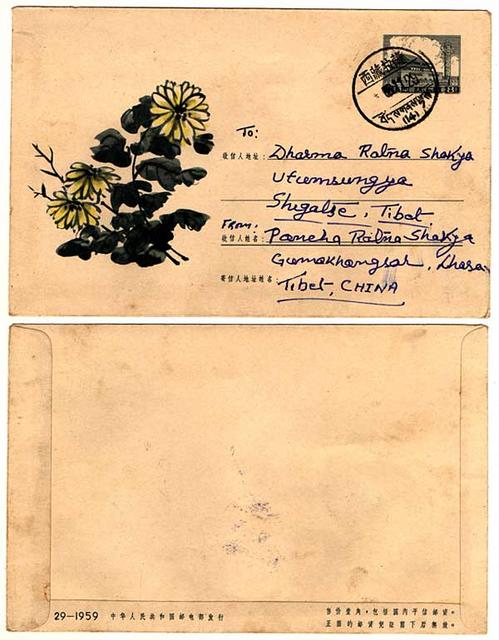 西藏拉薩
8
To:
收信人地址：Dharma Ratna Shakya
Utumsungya
Shigatse, Tibet
From:
收信人姓名：Pancha Ratna Shakya
Gumakhangsar, Lhasa
寄信人地址姓名：
Tibet, CHINA
29-1959 中华人民共和国邮电部发行
售价壹角，包括国内平信邮资。
正面的邮资凭证剪下后无效。